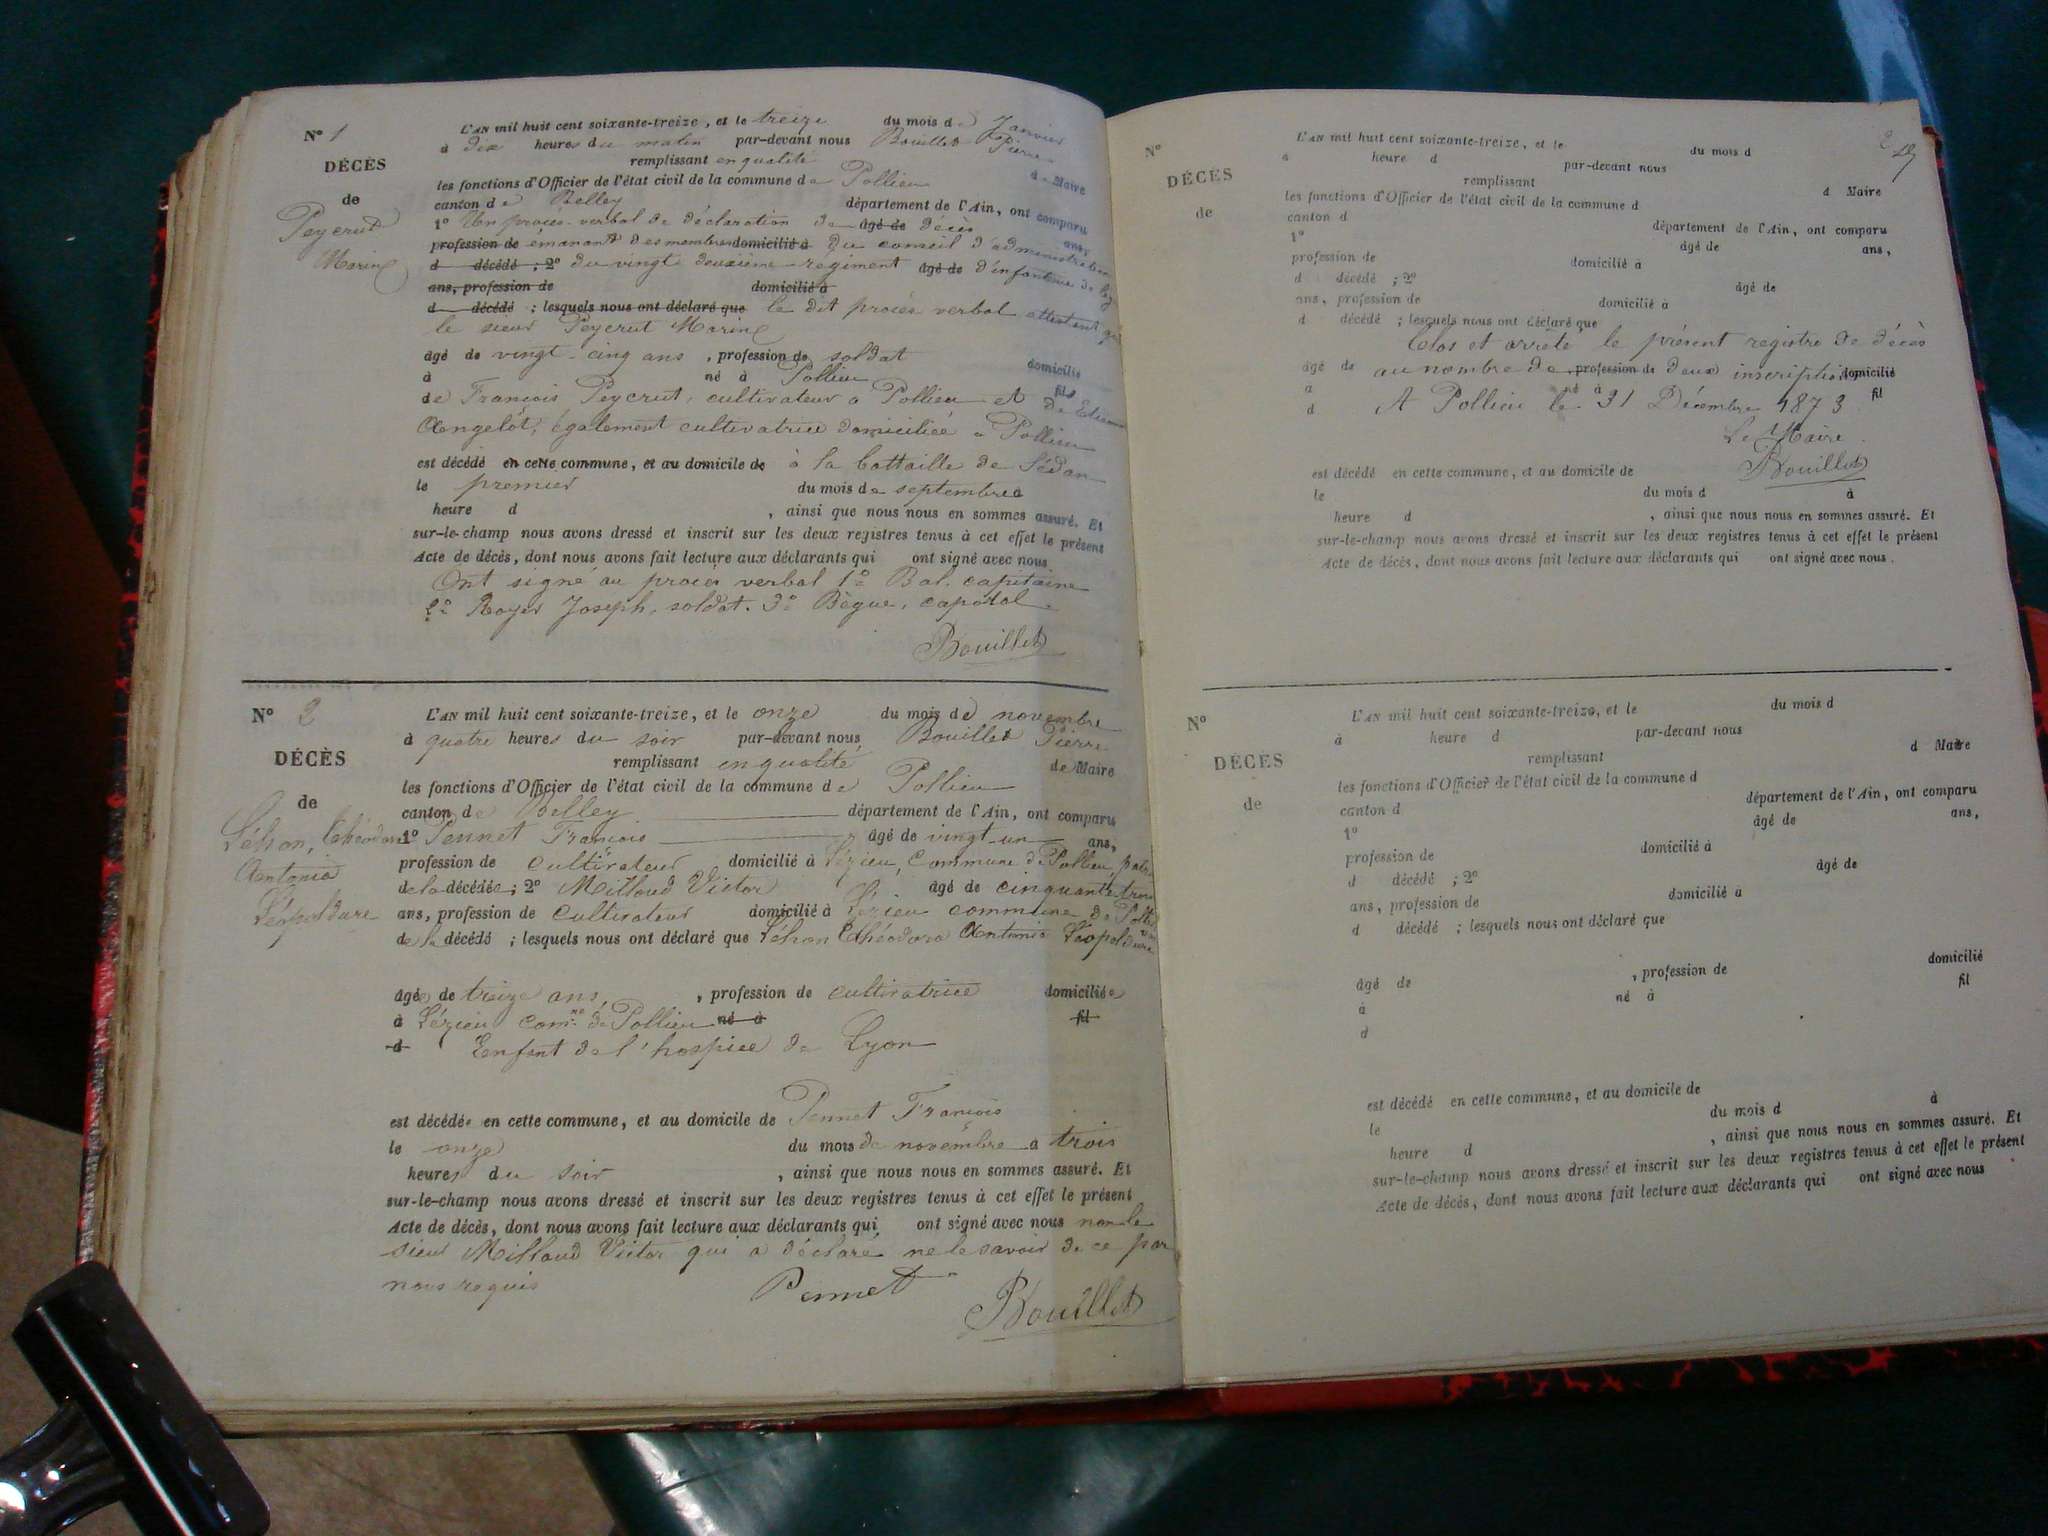 N° 1
DÉCÈS
de
Peycrut
Marin
L'AN mil huit cent soixante-treize, et le treize du mois de Janvier
à dix heures du matin par-devant nous Bouillet Pierre
remplissant en qualité de Maire
les fonctions d'Officier de l'état civil de la commune de Pollieu
canton de Belley département de l'Ain, ont comparu
1° Un procès-verbal de déclaration de âgé de décès ans
profession de émanant des membres domicilié à du conseil d'administration
d décédé ; 2° du vingt deuxième régiment âgé de d'infanterie de
ans, profession de domicilié à
d décédé ; lesquels nous ont déclaré que le dit procès verbal attestant que
le sieur Peycrut Marin
âgé de vingt-cinq ans, profession de soldat domicilié
à né à Pollieu fils
de François Peycrut, cultivateur à Pollieu et de
Angelot, également cultivatrice domiciliée à Pollieu
est décédé en cette commune, et au domicile de à la battaille de Sédan
le premier du mois de septembre à
heure d , ainsi que nous nous en sommes assuré. Et
sur-le-champ nous avons dressé et inscrit sur les deux registres tenus à cet effet le présent
Acte de décès, dont nous avons fait lecture aux déclarants qui ont signé avec nous
Ont signé au procès verbal 1° Bal, capitaine
2° Royer Joseph, soldat. 3° Bègue, caporal
Bouillet
N° 2
DÉCÈS
de
Léhon, Théodora
Antonia
Léopoldure
L'AN mil huit cent soixante-treize, et le onze du mois de novembre
à quatre heures du soir par-devant nous Bouillet Pierre
remplissant en qualité de Maire
les fonctions d'Officier de l'état civil de la commune de Pollieu
canton de Belley département de l'Ain, ont comparu
1° Pennet François âgé de vingt-un ans,
profession de cultivateur domicilié à Lézieu, commune de Pollieu,
de la décédée ; 2° Millaud Victor âgé de cinquante trois
ans, profession de cultivateur domicilié à Lézieu commune de
de la décédé ; lesquels nous ont déclaré que Léhon Théodora Antonia Léopoldure
âgée de treize ans, profession de cultivatrice domiciliée
à Lézieu comne de Pollieu né à fil
d Enfant de l'hospice de Lyon
est décédée en cette commune, et au domicile de Pennet François
le onze du mois de novembre à trois
heures du soir , ainsi que nous nous en sommes assuré. Et
sur-le-champ nous avons dressé et inscrit sur les deux registres tenus à cet effet le présent
Acte de décès, dont nous avons fait lecture aux déclarants qui ont signé avec nous non le
sieur Millaud Victor qui a déclaré ne le savoir de ce par
nous requis Pennet
Bouillet
N°
DÉCÈS
de
L'AN mil huit cent soixante-treize, et le du mois d
à heure d par-devant nous
remplissant d Maire
les fonctions d'Officier de l'état civil de la commune d
canton d département de l'Ain, ont comparu
1° âgé de ans,
profession de domicilié à
d décédé ; 2° âgé de
ans, profession de domicilié à
d décédé ; lesquels nous ont déclaré que
Clos et arrêté le présent registre de décès
âgé de au nombre de profession de deux inscriptions domicilié
à né à fil
d A Pollieu le 31 Décembre 1873
Le Maire
Bouillet
est décédé en cette commune, et au domicile de
le du mois d à
heure d , ainsi que nous nous en sommes assuré. Et
sur-le-champ nous avons dressé et inscrit sur les deux registres tenus à cet effet le présent
Acte de décès, dont nous avons fait lecture aux déclarants qui ont signé avec nous.
N°
DÉCÈS
de
L'AN mil huit cent soixante-treize, et le du mois d
à heure d par-devant nous
remplissant d Maire
les fonctions d'Officier de l'état civil de la commune d
canton d département de l'Ain, ont comparu
1° âgé de ans,
profession de domicilié à
d décédé ; 2° âgé de
ans, profession de domicilié à
d décédé ; lesquels nous ont déclaré que
âgé de , profession de domicilié
à né à fil
d
est décédé en cette commune, et au domicile de
le du mois d à
heure d , ainsi que nous nous en sommes assuré. Et
sur-le-champ nous avons dressé et inscrit sur les deux registres tenus à cet effet le présent
Acte de décès, dont nous avons fait lecture aux déclarants qui ont signé avec nous